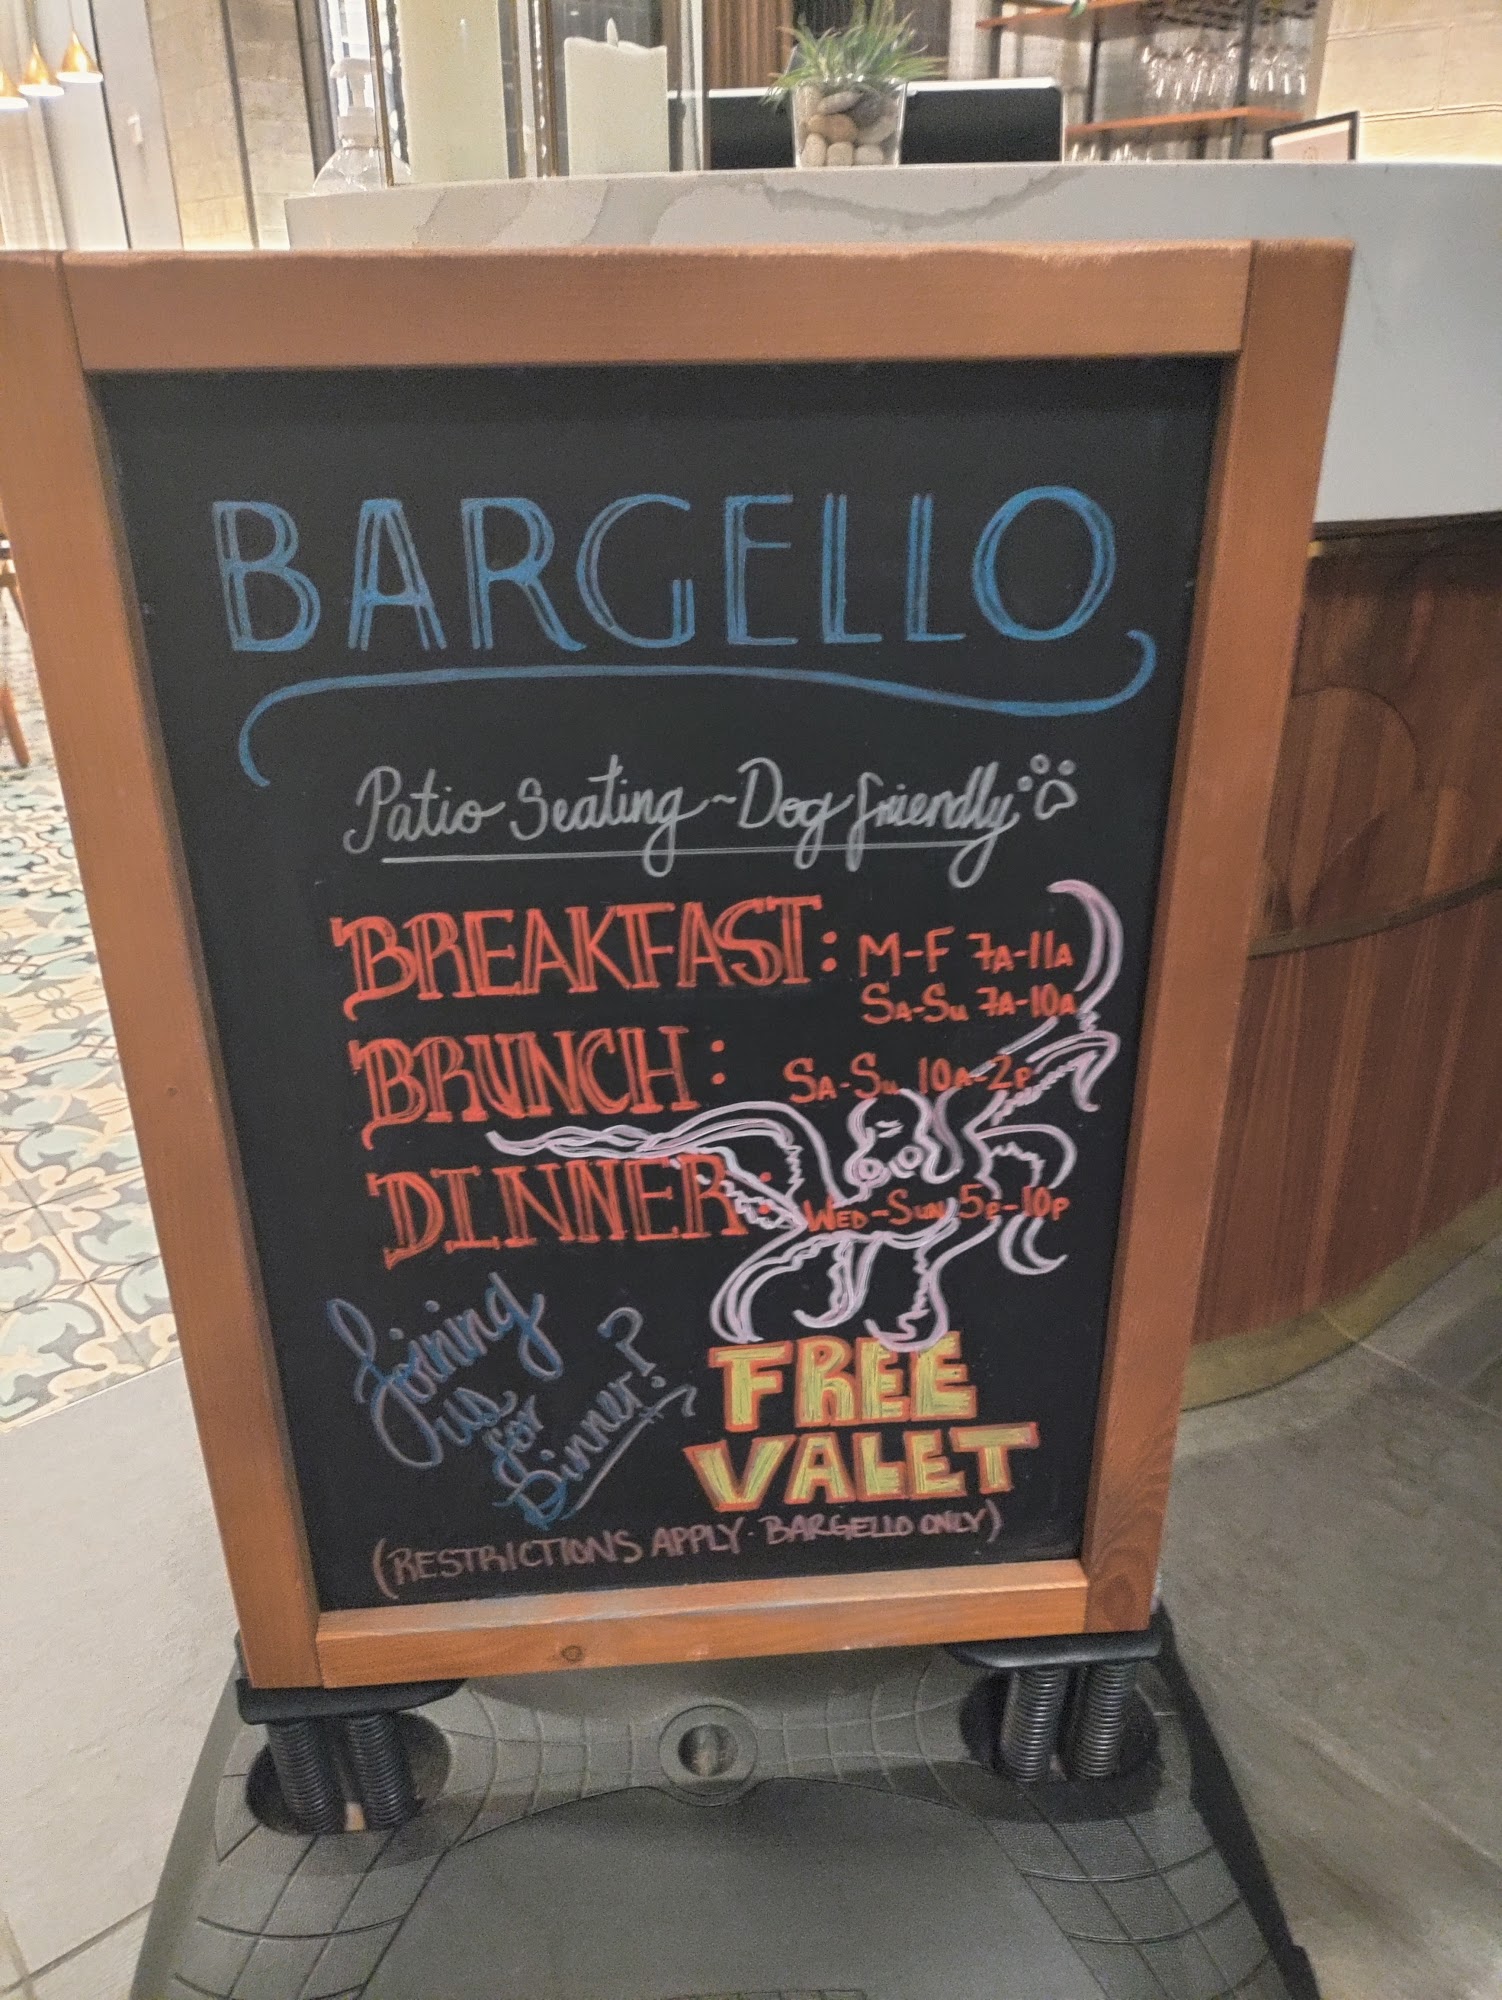 BARGELLO
Patio Seating ~ Dog friendly
BREAKFAST: M-F 7A-11A
SA-SU 7A-10A
BRUNCH: SA-SU 10A-2P
DINNER: WED-SUN 5P-10P
Joining
us
for
Dinner?
FREE
VALET
(RESTRICTIONS APPLY · BARGELLO ONLY)